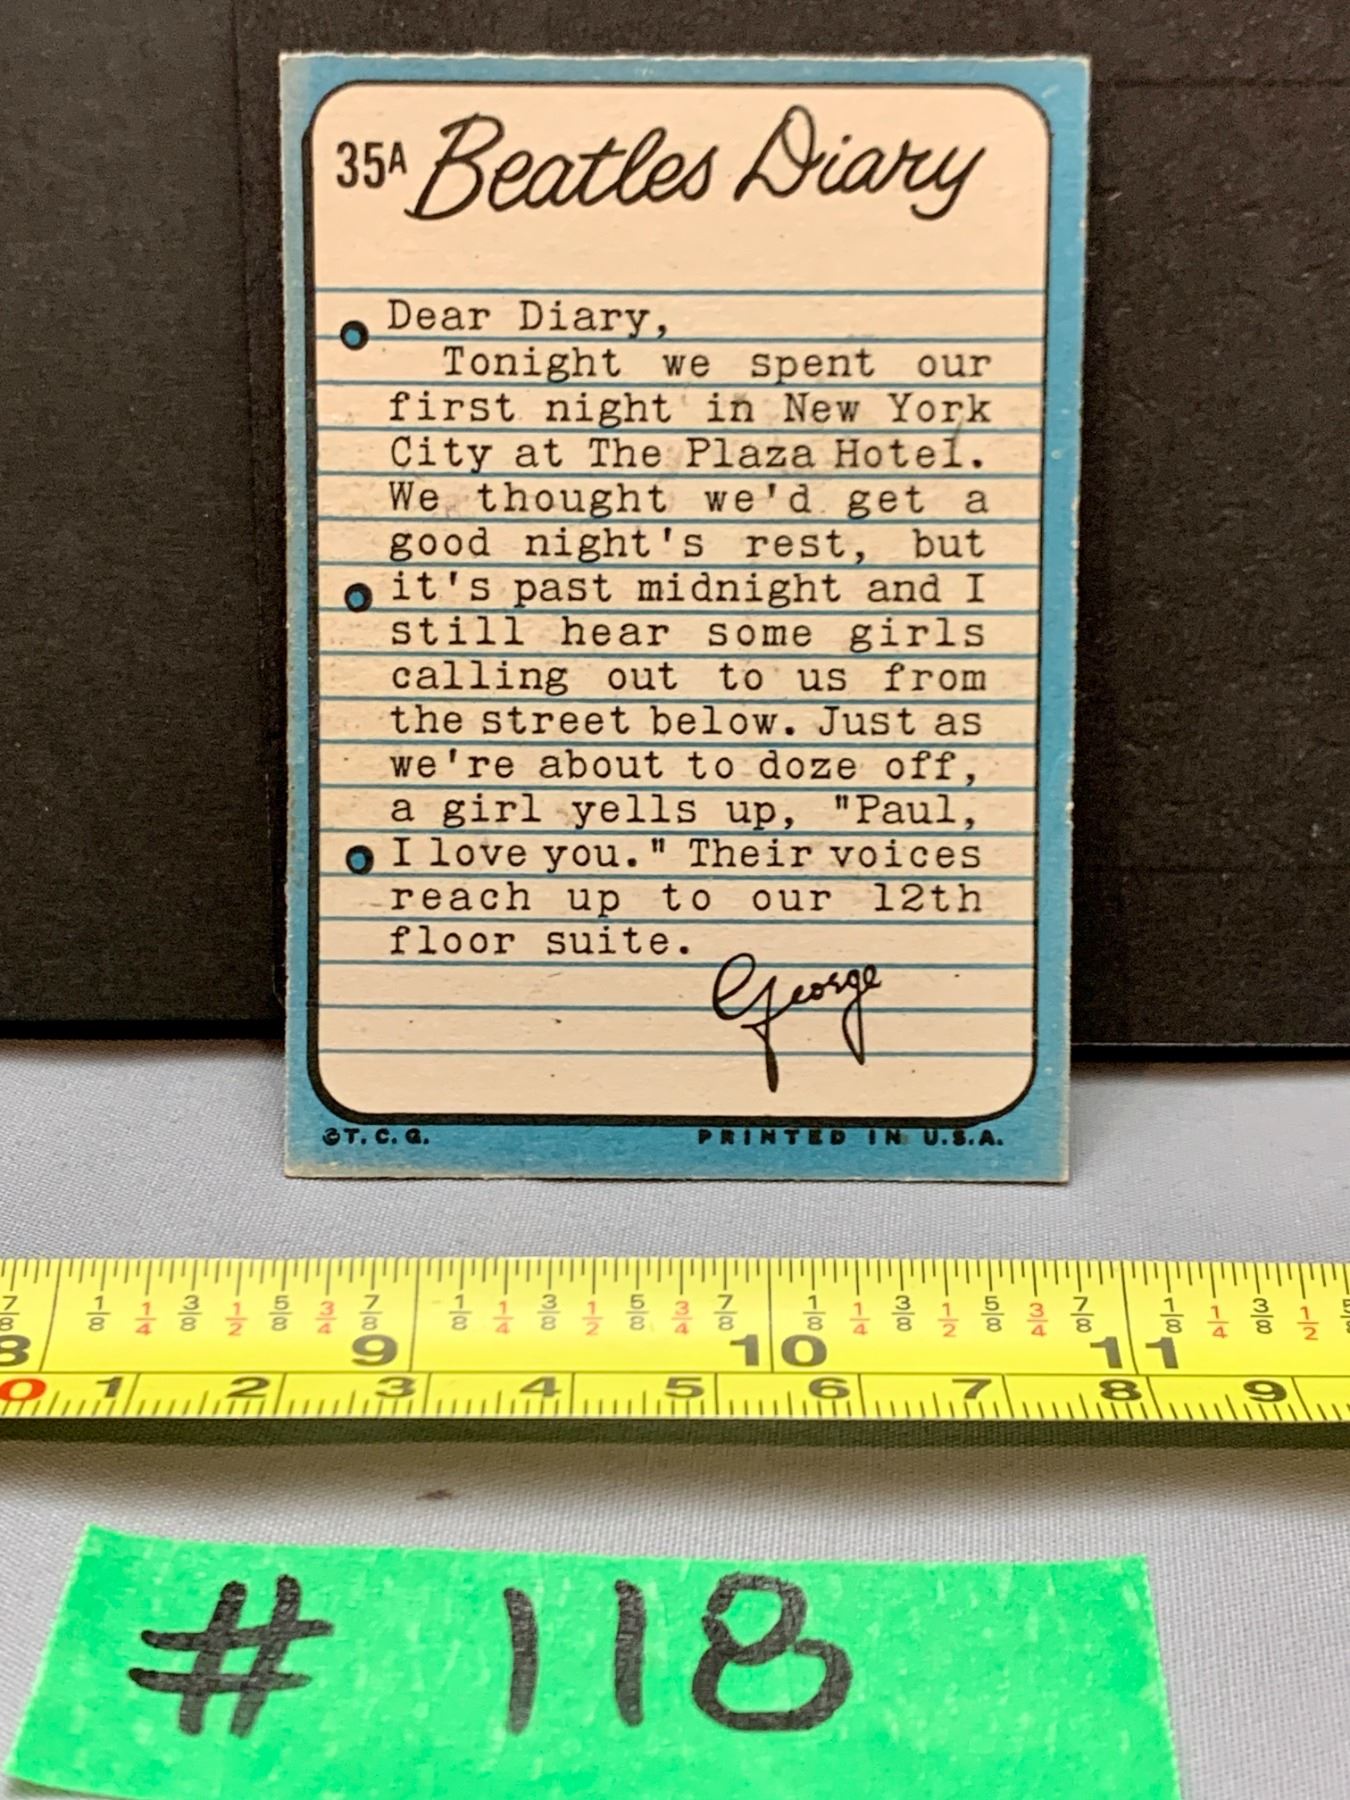 35A Beatles Diary
Dear Diary,
Tonight we spent our
first night in New York
City at The Plaza Hotel.
We thought we'd get a
good night's rest, but
it's past midnight and I
still hear some girls
calling out to us from
the street below. Just as
we're about to doze off,
a girl yells up, "Paul,
I love you." Their voices
reach up to our 12th
floor suite.
George
©T.C.G. PRINTED IN U.S.A.
7/8 1/8 1/4 3/8 1/2 5/8 3/4 7/8 1/8 1/4 3/8 1/2 5/8 3/4 7/8 1/8 1/4 3/8 1/2 5/8 3/4 7/8 1/8 1/4 3/8 1/2
8 9 10 11
0 1 2 3 4 5 6 7 8 9
# 118